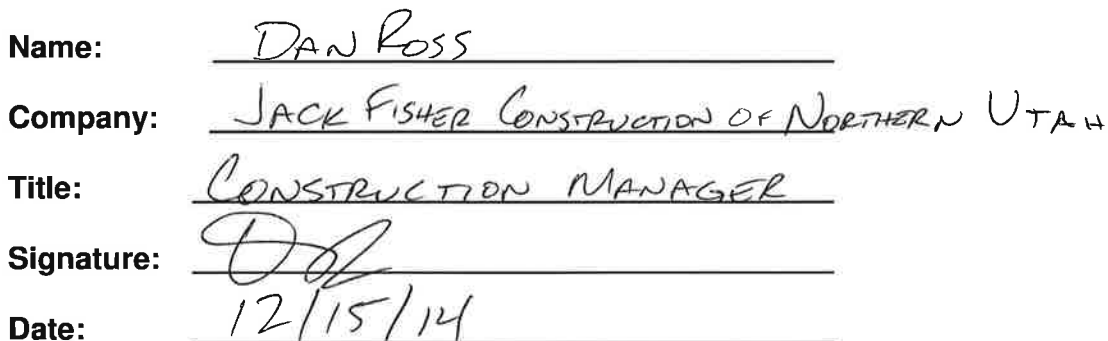 Name: DAN ROSS
Company: JACK FISHER CONSTRUCTION OF NORTHERN UTAH
Title: CONSTRUCTION MANAGER
Signature:
Date: 12/15/14